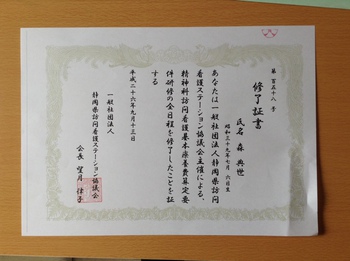 第 百五十八 号
修了証書
氏名 森 典世
昭和三十九年七月 六日生
あなたは一般社団法人静岡県訪問
看護ステーション協議会主催による、
精神科訪問看護基本療養費算定要
件研修の全日程を修了したことを証
する
平成二十六年九月十三日
一般社団法人
静岡県訪問看護ステーション協議会
会長 望月 律子